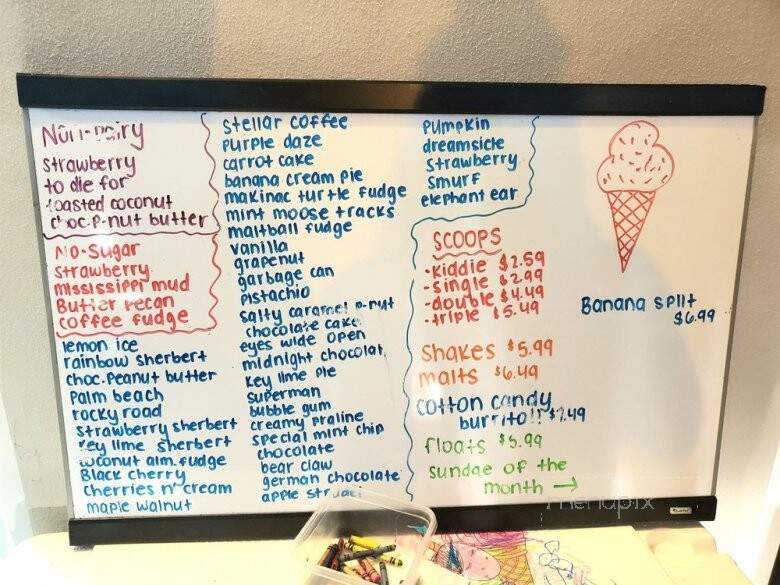 Non-Dairy
strawberry
to die for
toasted coconut
choc.p-nut butter
No-Sugar
strawberry
mississippi mud
Butter pecan
coffee fudge
lemon ice
rainbow sherbert
choc.peanut butter
palm beach
rocky road
strawberry sherbert
key lime sherbert
coconut alm.fudge
Black cherry
cherries n' cream
maple walnut
stellar coffee
purple daze
carrot cake
banana cream pie
makinac turtle fudge
mint moose tracks
maltball fudge
vanilla
grapenut
garbage can
pistachio
salty caramel p-nut
chocolate cake
eyes wide open
midnight chocolat
key lime pie
superman
bubble gum
creamy praline
special mint chip
chocolate
bear claw
german chocolate
apple strudel
pumpkin
dreamsicle
strawberry
smurf
elephant ear
SCOOPS
-kiddie $2.59
-single $2.99
-double $4.49
-triple $5.49
shakes $5.99
malts $6.49
cotton candy
burrito!! $7.49
floats $5.99
sundae of the
month →
Banana split
$6.99
menupix